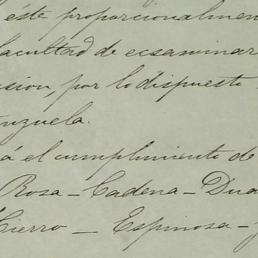 éste proporcionalmen
facultad de ecsaminar
sion, por lo dispuesto
nzuela.
á el cumplimiento de
Rosa - Cadena - Dua
Cierro - Espinosa -